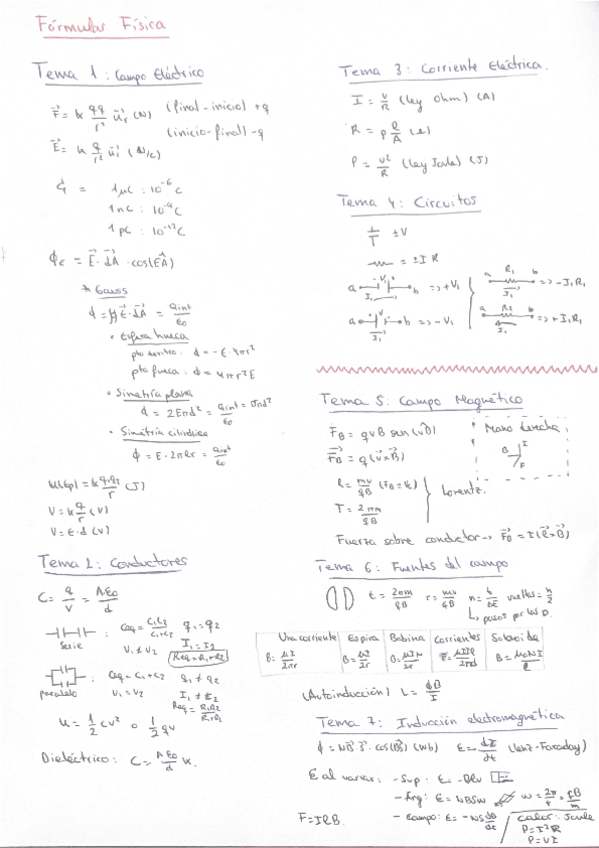 Fórmulas Física
Tema 1: Campo Eléctrico
F⃗ = k qq/r² u⃗r (N) (final-inicial) +q
(inicio-final) -q
E⃗ = k q/r² u⃗r (N/C)
q = 1μC : 10⁻⁶ C
1nC : 10⁻⁹ C
1pC : 10⁻¹² C
ϕE = E⃗ · dA⃗ · cos(EA)
* Gauss
ϕ = ∯ E⃗ · dA⃗ = qint/ε0
• Esfera hueca
pto dentro: ϕ = -E·4πr²
pto fuera: ϕ = 4πr²E
• Simetría plana
= qint/ε0
• Simetría cilíndrica
ϕ = E·2πlr = qint/ε0
(J)
V = k q/r (V)
V = E·d (V)
Tema 2: Conductores
C = q/V = A·ε0/d
Serie : Ceq = C1C2/(C1+C2) q1 = q2
V1 ≠ V2 I1 = I2
Req = R1+R2
paralelo : Ceq = C1+C2 q1 ≠ q2
V1 = V2 I1 ≠ I2
Req = R1R2/(R1+R2)
U = 1/2 CV² o 1/2 qV
Dieléctrico: C = A·ε0/d K.
Tema 3: Corriente Eléctrica.
I = V/R (ley Ohm) (A)
R = ρ l/A
P = V²/R (ley Joule) (J)
Tema 4: Circuitos
±V
= ±I R
a b => +V1
a R1 b => -I1R1
a b => -V1
a R1 b => +I1R1
Tema 5: Campo Magnético
FB = qvB sen(vB)
Mano derecha
B I
F
F⃗B = q(v⃗×B⃗)
= mv/qB
T = 2πm/qB
Lorentz.
Fuerza sobre conductor → F⃗B = I(l⃗×B⃗)
Tema 6: Fuentes del campo
t = 2πm/qB r = mv/qB vueltas = n/2
pasos por los D.
Una corriente Espira Bobina Corrientes Solenoide
B = μI/2πr B = μI/2r B = μIN/2r B = μ0NI/l
(Autoinducción) L = ϕB/I
Tema 7: Inducción electromagnética
ϕ = NB⃗·S⃗·cos(BS) (Wb) (Lenz-Faraday)
E al variar: - Sup: E = -Blv
- Ang: E = NBSω
F = IlB. - Campo: E = -NS dB/dt
Calor: Joule
P = I²R
P = VI